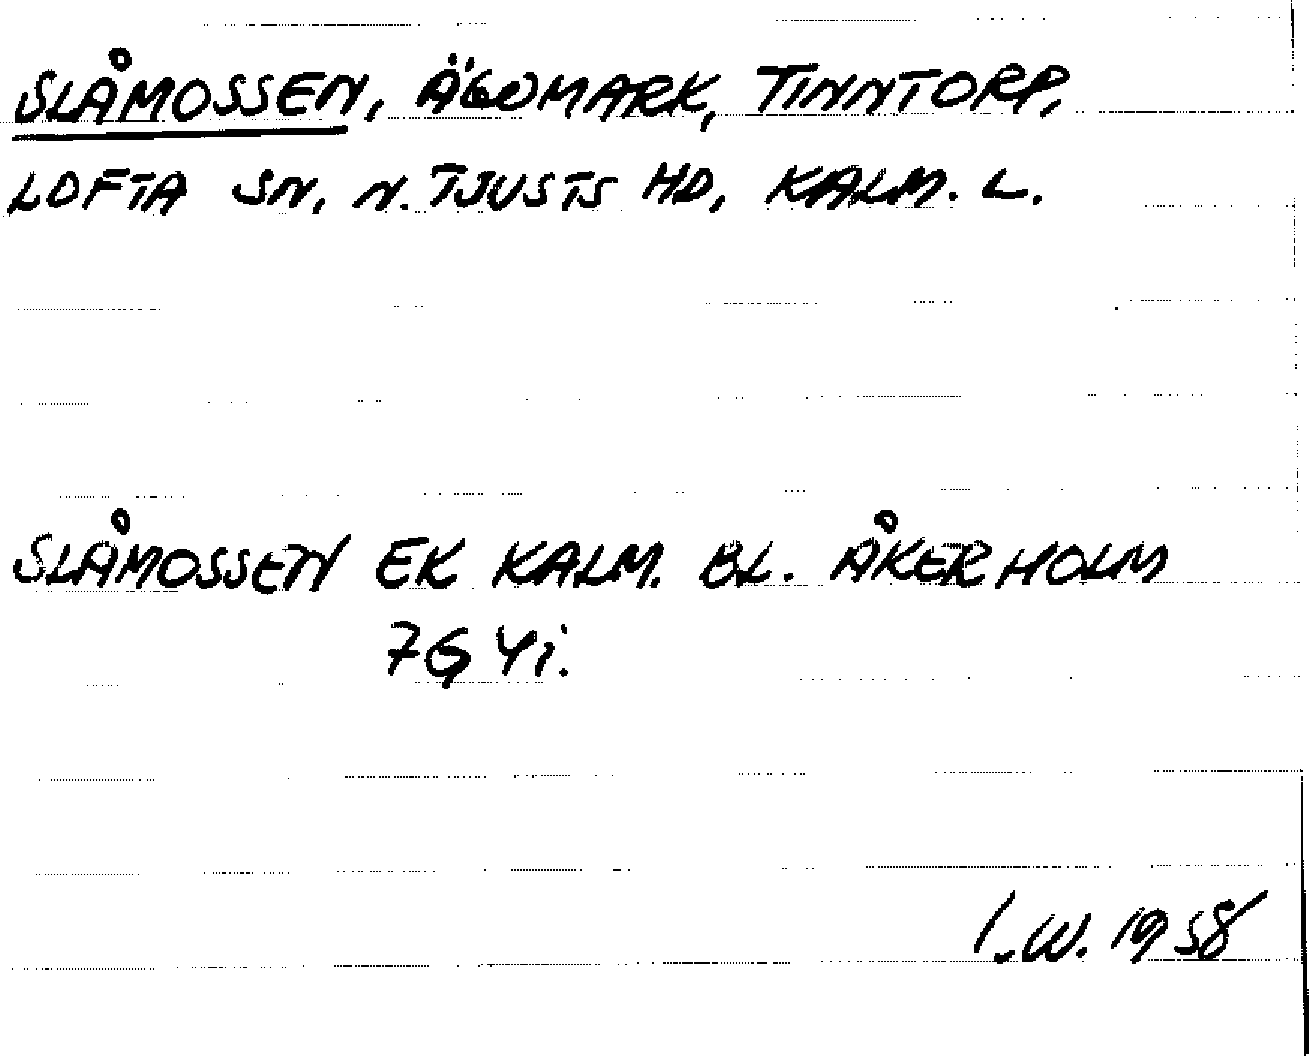 SLÅMOSSEN, ÄGOMARK, TINNTORP,
LOFTA SN, N. TJUSTS HD, KALM. L.
SLÅMOSSEN EK KALM. BL. ÅKERHOLM
7G 4i.
I.W. 1958